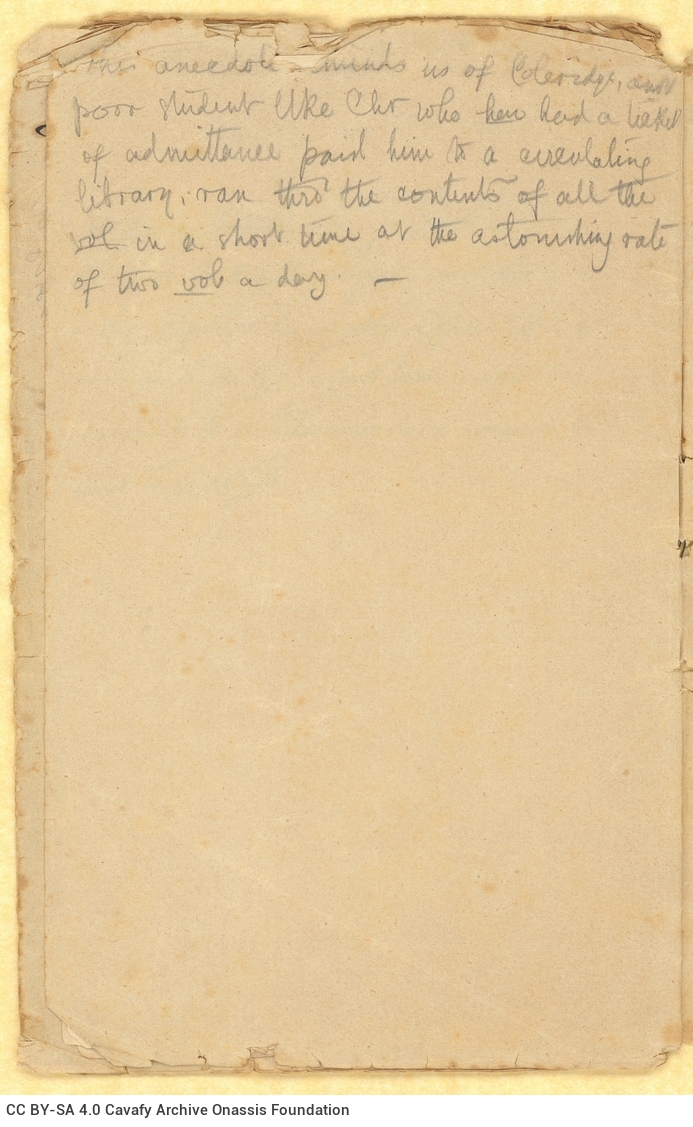 This anecdote minds us of Coleridge, a
poor student like Chr who had a ticket
of admittance paid him to a circulating
library, ran thro the contents of all the
vol in a short time at the astonishing rate
of two vols a day. —
CC BY-SA 4.0 Cavafy Archive Onassis Foundation